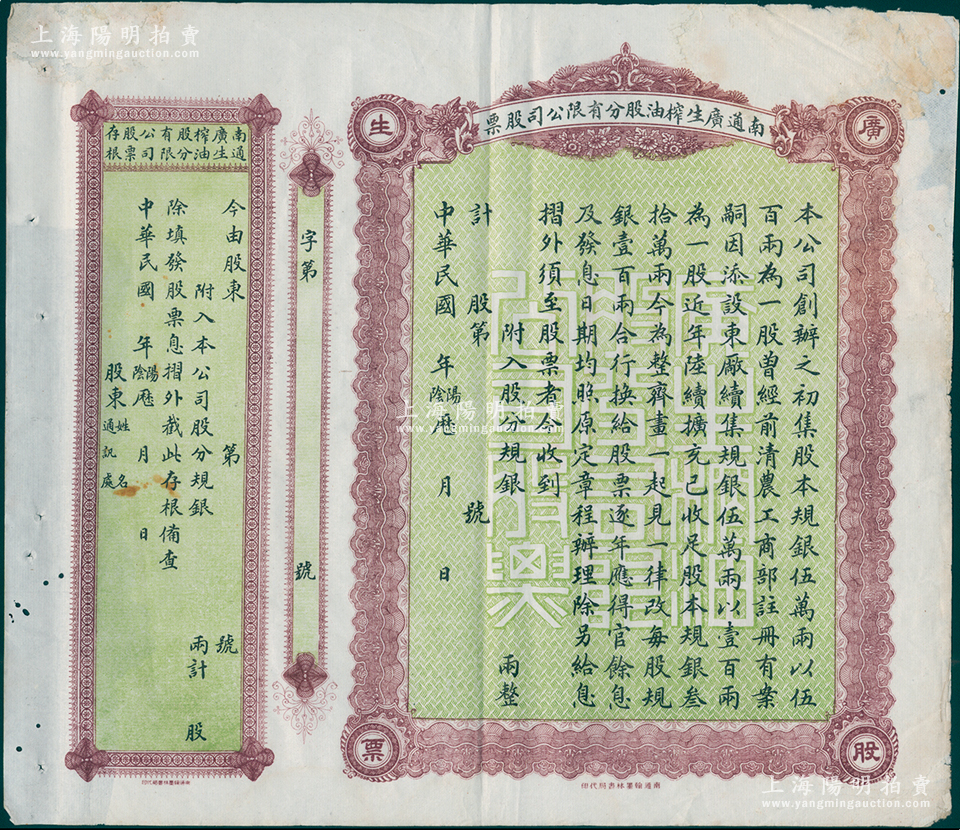 上海陽明拍賣
www.yangmingauction.com
南通廣生榨油股分有限公司股票
廣
生
股
票
本公司創辦之初集股本規銀伍萬兩以伍
百兩為一股曾經前清農工商部註冊有案
嗣因添設東厰續集規銀伍萬兩以壹百兩
為一股近年陸續擴充已收足股本規銀叁
拾萬兩今為整齊畫一起見一律改每股規
銀壹百兩合行換給股票逐年應得官餘息
及發息日期均照原定章程辦理除另給息
摺外須至股票者今收到
附入股分規銀 兩整
計 股第 號
中華民國 年 陰陽厯 月 日
南通翰墨林書局代印
字第 號
南通廣生榨油股分有限公司股票存根
今由股東 第 號
附入本公司股分規銀 兩計 股
除填發股票息摺外截此存根備查
中華民國 年 陰陽厯 月 日
股東 姓名
通訊處
南通翰墨林書局代印
上海陽明拍賣
www.yangmingauction.com
上海陽明拍賣
www.yangmingauction.com